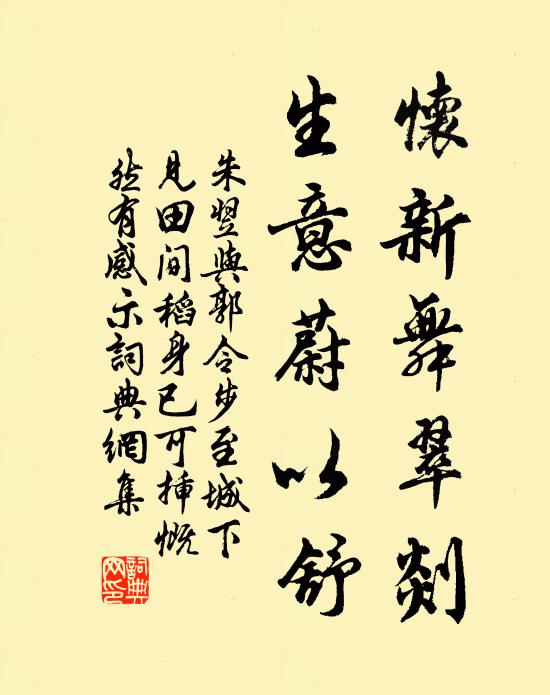 懷新舞翠剡
生意蔚以舒
朱翌與郭令步至城下
見田間稻身已可插慨
然有感示詞典網集
詞典
网印